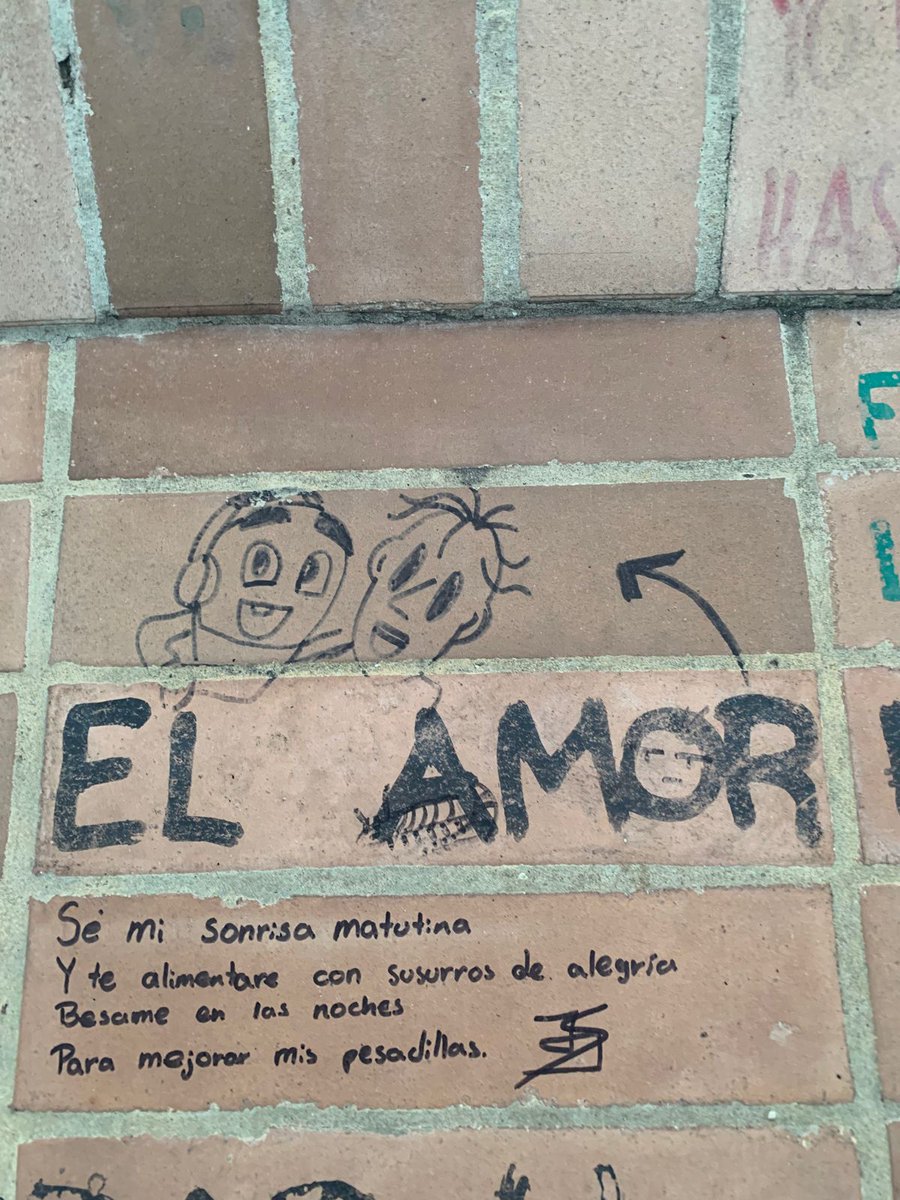 HAS
EL AMOR
Sé mi sonrisa matutina
Y te alimentare con susurros de alegría
Besame en las noches
Para mejorar mis pesadillas.